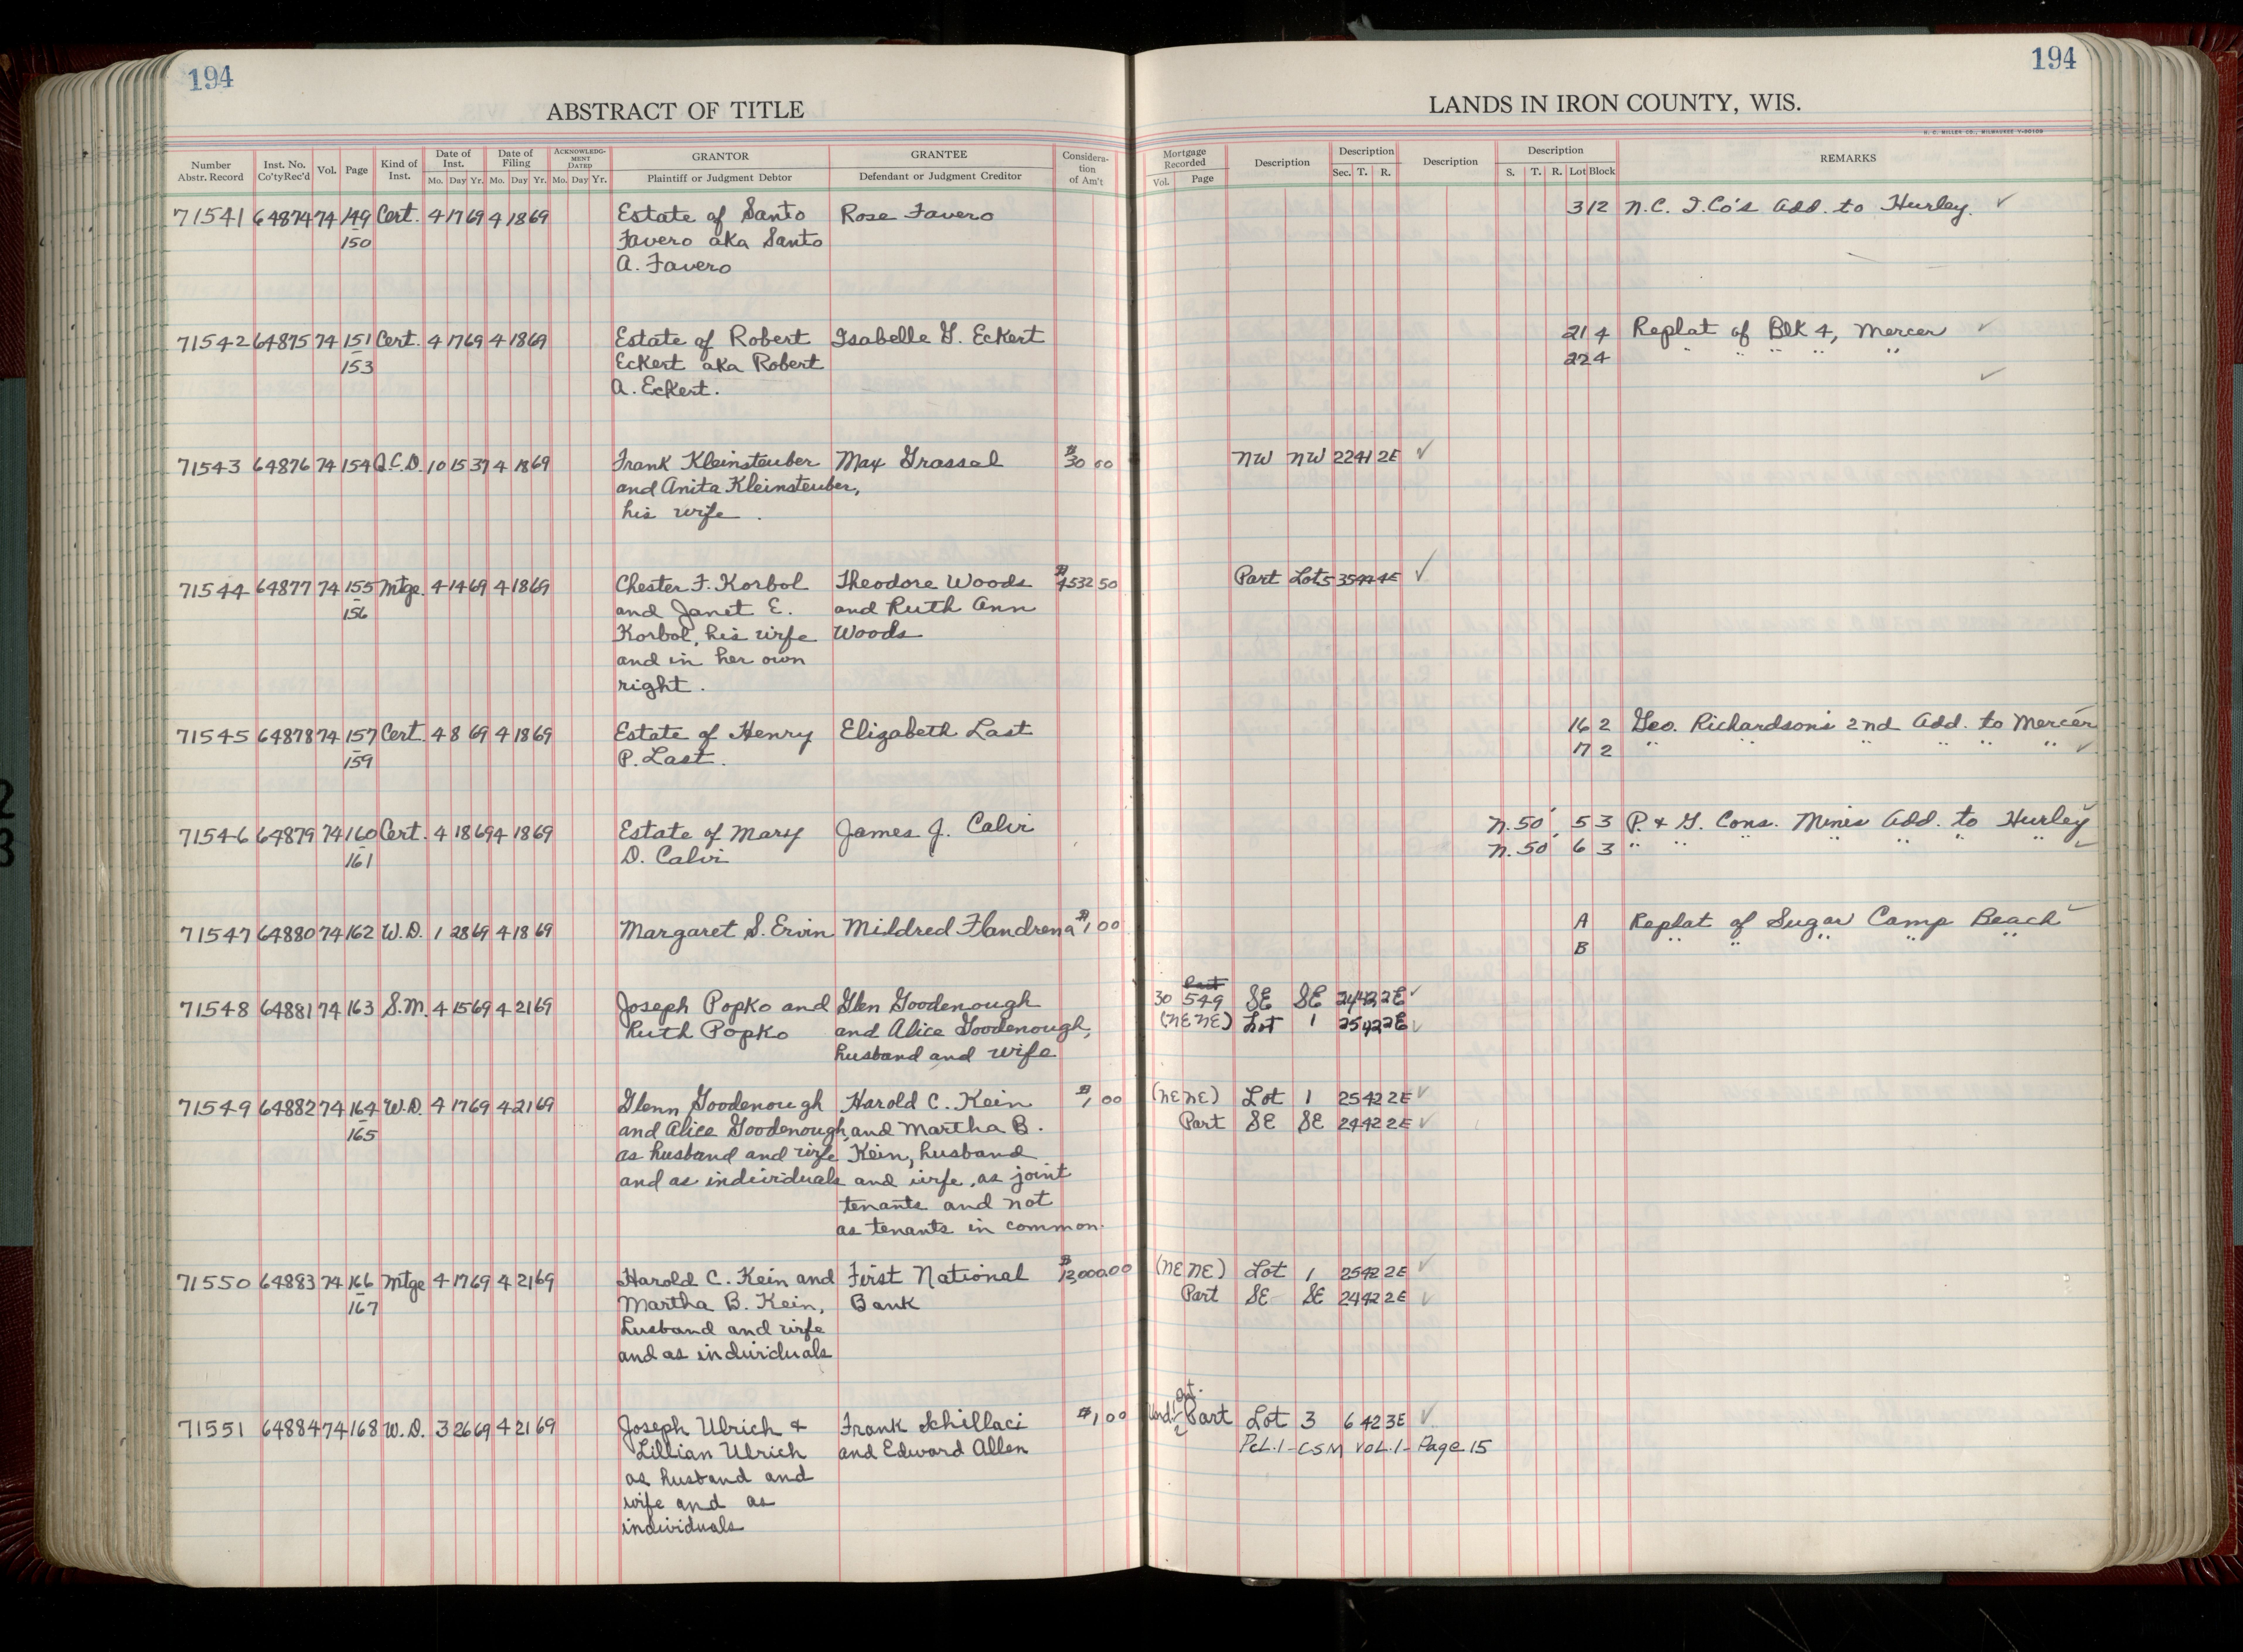 194
ABSTRACT OF TITLE
Number Abstr. Record | Inst. No. Co'ty Rec'd | Vol. | Page | Kind of Inst. | Date of Inst. Mo. Day Yr. | Date of Filing Mo. Day Yr. | ACKNOWLEDGMENT DATED Mo. Day Yr. | GRANTOR Plaintiff or Judgment Debtor | GRANTEE Defendant or Judgment Creditor | Consideration of Am't
71541 64874 74 149 Cert. 4 17 69 4 18 69 Estate of Santo Rose Favero
150 Favero aka Santo
A. Favero
71542 64875 74 151 Cert. 4 17 69 4 18 69 Estate of Robert Isabelle G. Eckert
153 Eckert aka Robert
A. Eckert.
71543 64876 74 154 Q.C.D. 10 15 37 4 18 69 Frank Kleinsteuber Max Grassal $30 00
and Anita Kleinsteuber,
his wife.
71544 64877 74 155 Mtge. 4 14 69 4 18 69 Chester F. Korbol Theodore Woods $4532 50
156 and Janet E. and Ruth Ann
Korbol, his wife Woods
and in her own
right.
71545 64878 74 157 Cert. 4 8 69 4 18 69 Estate of Henry Elizabeth Last
159 P. Last.
71546 64879 74 160 Cert. 4 18 69 4 18 69 Estate of Mary James J. Calvi
161 D. Calvi
71547 64880 74 162 W.D. 1 28 69 4 18 69 Margaret S. Ervin Mildred Flandrena $1,00
71548 64881 74 163 S.M. 4 15 69 4 21 69 Joseph Popko and Glen Goodenough
Ruth Popko and Alice Goodenough,
husband and wife
71549 64882 74 164 W.D. 4 17 69 4 21 69 Glenn Goodenough Harold C. Kein $1,00
165 and Alice Goodenough, and Martha B.
as husband and wife Kein, husband
and as individuals and wife, as joint
tenants and not
as tenants in common.
71550 64883 74 166 Mtge 4 17 69 4 21 69 Harold C. Kein and First National $12,000.00
167 Martha B. Kein, Bank
husband and wife
and as individuals
71551 64884 74 168 W.D. 3 26 69 4 21 69 Joseph Ulrich & Frank Schillaci $1,00
Lillian Ulrich and Edward Allen
as husband and
wife and as
individuals
194
LANDS IN IRON COUNTY, WIS.
H. C. MILLER CO., MILWAUKEE V-90109
Mortgage Recorded Vol. Page | Description | Description Sec. T. R. | Description | Description S. T. R. Lot Block | REMARKS
3 12 N.C. I.Co's Add. to Hurley. ✓
21 4 Replat of Blk 4, Mercer ✓
22 4 " " " " " ✓
NW NW 22 41 2E ✓
Part Lot 5 35 42 4E ✓
16 2 Geo. Richardson's 2nd Add. to Mercer ✓
17 2 " " " " " " ✓
N. 50' 5 3 P. & G. Cons. Mines Add. to Hurley ✓
N. 50' 6 3 " " " " " " ✓
A Replat of Sugar Camp Beach ✓
B " " " " "
Part
30 549 SE SE 24 42 2E ✓
(NE NE) Lot 1 25 42 2E ✓
(NE NE) Lot 1 25 42 2E ✓
Part SE SE 24 42 2E ✓
(NE NE) Lot 1 25 42 2E ✓
Part SE SE 24 42 2E ✓
Und. 1/2 Int. Part Lot 3 6 42 3E ✓
Pcl. 1 - CSM Vol. 1 - Page 15